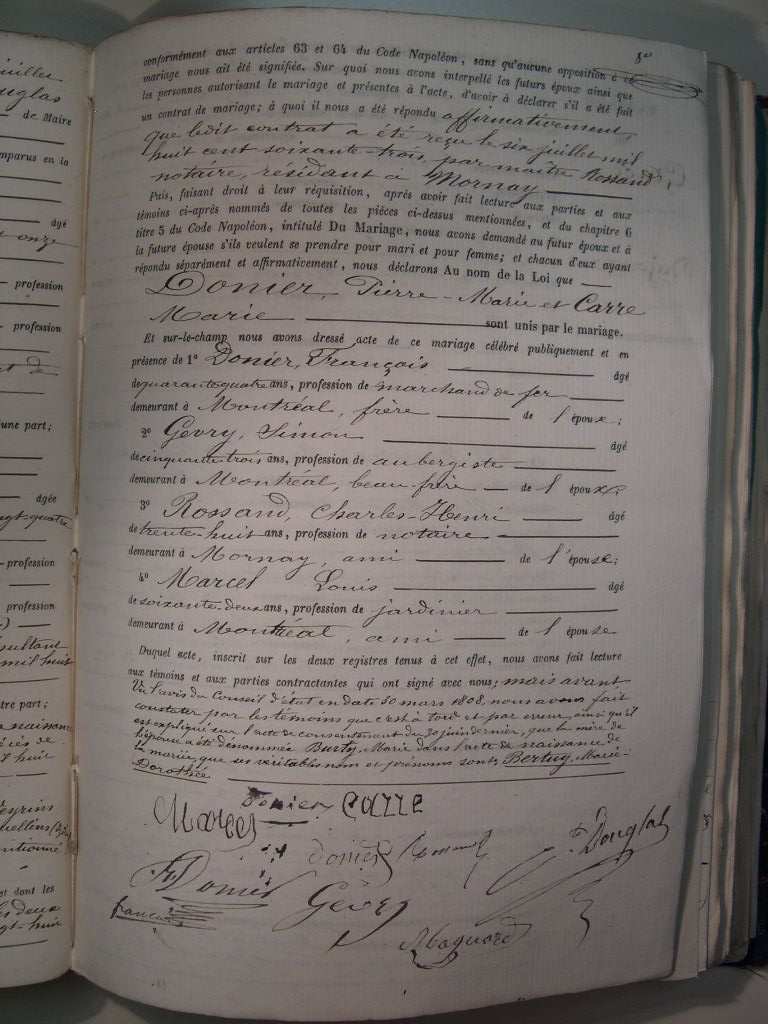 uillet
ouglas
de Maire
omparus en la
âgé
onze
profession
profession
'une part;
âgée
ngt-quatre
profession
profession
sultant
mil huit
tre part;
naissance
huit
eyrins
ntionné
ont les
les deux
gt-huit
conformément aux articles 63 et 64 du Code Napoléon, sans qu'aucune opposition à ce
mariage nous ait été signifiée. Sur quoi nous avons interpellé les futurs époux ainsi que
les personnes autorisant le mariage et présentes à l'acte, d'avoir à déclarer s'il a été fait
un contrat de mariage; à quoi il nous a été répondu affirmativement,
que ledit contrat a été reçu le six juillet mil
huit cent soixante-trois, par maître Rossand,
notaire, résidant à Mornay
Puis, faisant droit à leur réquisition, après avoir fait lecture aux parties et aux
témoins ci-après nommés de toutes les pièces ci-dessus mentionnées, et du chapitre 6
titre 5 du Code Napoléon, intitulé Du Mariage, nous avons demandé au futur époux et à
la future épouse s'ils veulent se prendre pour mari et pour femme; et chacun d'eux ayant
répondu séparément et affirmativement, nous déclarons Au nom de la Loi que
Donier, Pierre-Marie et Carre
Marie sont unis par le mariage.
Et sur-le-champ nous avons dressé acte de ce mariage célébré publiquement et en
présence de 1° Donier, François âgé
de quarante quatre ans, profession de marchand de fer
demeurant à Montréal, frère de l'époux;
2° Gevry, Simon âgé
de cinquante trois ans, profession de aubergiste
demeurant à Montréal, beau-frère de l'époux;
3° Rossand, Charles-Henri âgé
de trente-huit ans, profession de notaire
demeurant à Mornay, ami de l'épouse;
4° Marcel Louis âgé
de soixante-deux ans, profession de jardinier
demeurant à Montréal, ami de l'épouse
Duquel acte, inscrit sur les deux registres tenus à cet effet, nous avons fait lecture
aux témoins et aux parties contractantes qui ont signé avec nous; mais avant
Vu l'avis du Conseil d'état en date 30 mars 1808, nous avons fait
constater par les témoins que c'est à tord et par erreur, ainsi qu'il
est expliqué sur l'acte de consentement du 30 juin dernier, que la mère de
l'épouse a été dénommée Burty, Marie dans l'acte de naissance de
la mariée, que ses véritables nom et prénoms sont Bertuy, Marie-
Dorothée
donier Carre
Marcel
donier
F. Douglas
F Donier
françois
Gevry